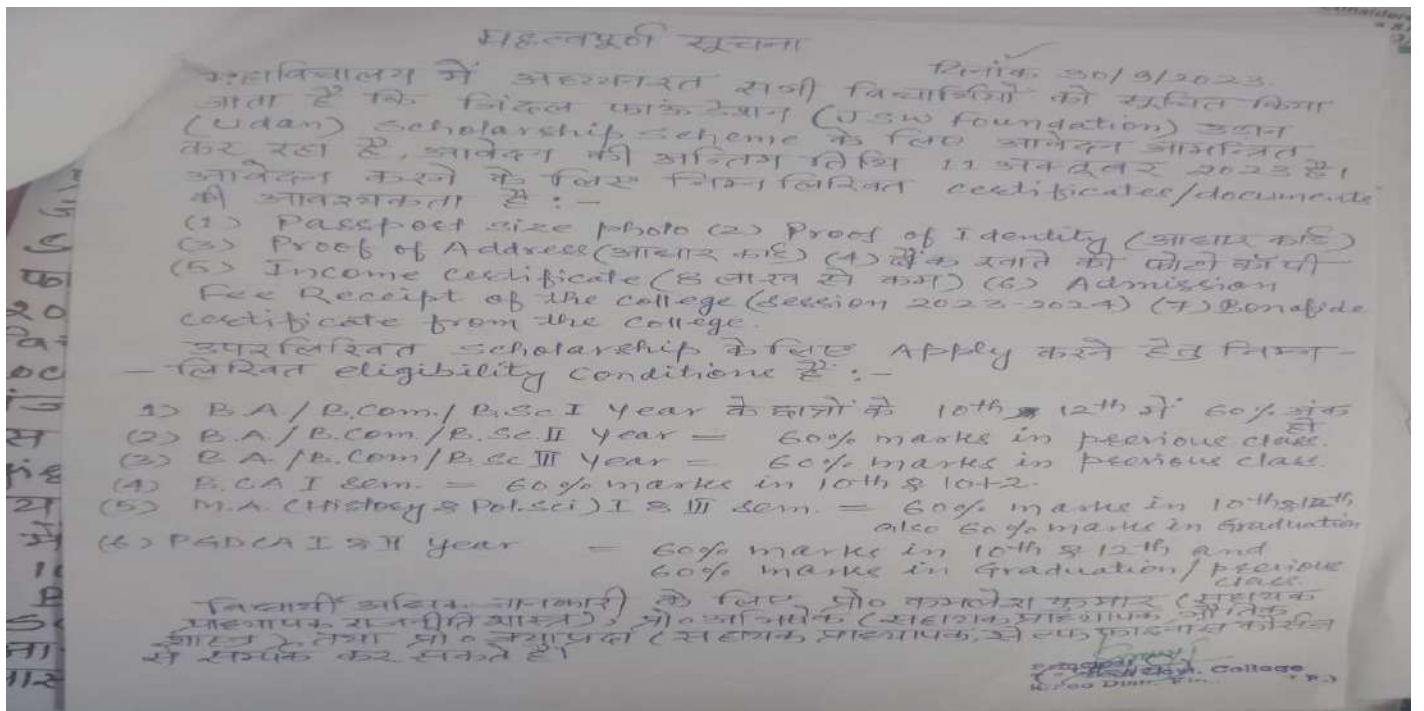 महत्वपूर्ण सूचना
दिनांक 30/9/2023
महाविद्यालय में अध्ययनरत सभी विद्यार्थियों को सूचित किया
जाता है कि जिंदल फाऊंडेशन (JSW Foundation) उड़ान
(Udan) Scholarship Scheme के लिए आवेदन आमन्त्रित
कर रहा है, आवेदन की अन्तिम तिथि 11 अक्टूबर 2023 है।
आवेदन करने के लिए निम्नलिखित certificates/documents
की आवश्यकता है :-
(1) Passport size photo (2) Proof of Identity (आधार कार्ड)
(3) Proof of Address (आधार कार्ड) (4) बैंक खाते की फोटो कॉपी
(5) Income certificate (8 लाख से कम) (6) Admission
Fee Receipt of the college (Session 2023-2024) (7) Bonafide
certificate from the college.
उपरलिखित Scholarship के लिए Apply करने हेतु निम्न-
-लिखित eligibility conditions हैं :-
1) B.A/B.Com./B.Sc I Year के छात्रों के 10th 12th में 60% अंक हो
(2) B.A/B.Com./B.Sc.II Year = 60% marks in previous class.
(3) B.A./B.Com/B.Sc III Year = 60% marks in previous class.
(4) B.C.A I Sem. = 60% marks in 10th & 10+2.
(5) M.A. (History & Pol.Sci) I & III Sem. = 60% marks in 10th & 12th,
also 60% marks in Graduation
(6) PGDCA I & II Year = 60% marks in 10th & 12th and
60% marks in Graduation/previous
class.
विद्यार्थी अधिक जानकारी के लिए प्रो० कमलेश कुमार (सहायक
प्राध्यापक राजनीति शास्त्र), प्रो० अभिषेक (सहायक प्राध्यापक भौतिक
शास्त्र), तथा प्रो० (सहायक प्राध्यापक, सेल्फ फाइनांस कोर्सिज
से सम्पर्क कर सकते है।
Principal
College